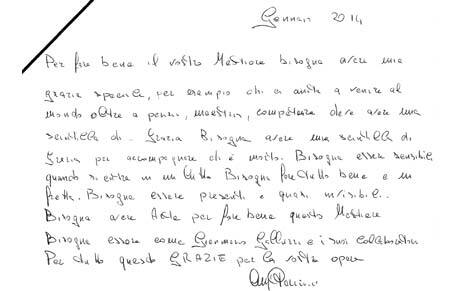 Gennaio 2014
Per fare bene il vostro Mestiere bisogna avere una
grazia speciale, per esempio chi ci aiuta a venire al
mondo oltre a penni, maestria, competenza deve avere una
scintilla di Grazia Bisogna avere una scintilla di
Grazia per accompagnare chi è morto. Bisogna essere sensibili
quando si entra in un lutto Bisogna fare tutto bene e in
fretta. Bisogna essere presenti e quasi invisibili.
Bisogna avere Arte per fare bene questo Mestiere
Bisogna essere come Giannino Gallussi e i suoi collaboratori
Per tutto questo GRAZIE per la vostra opera